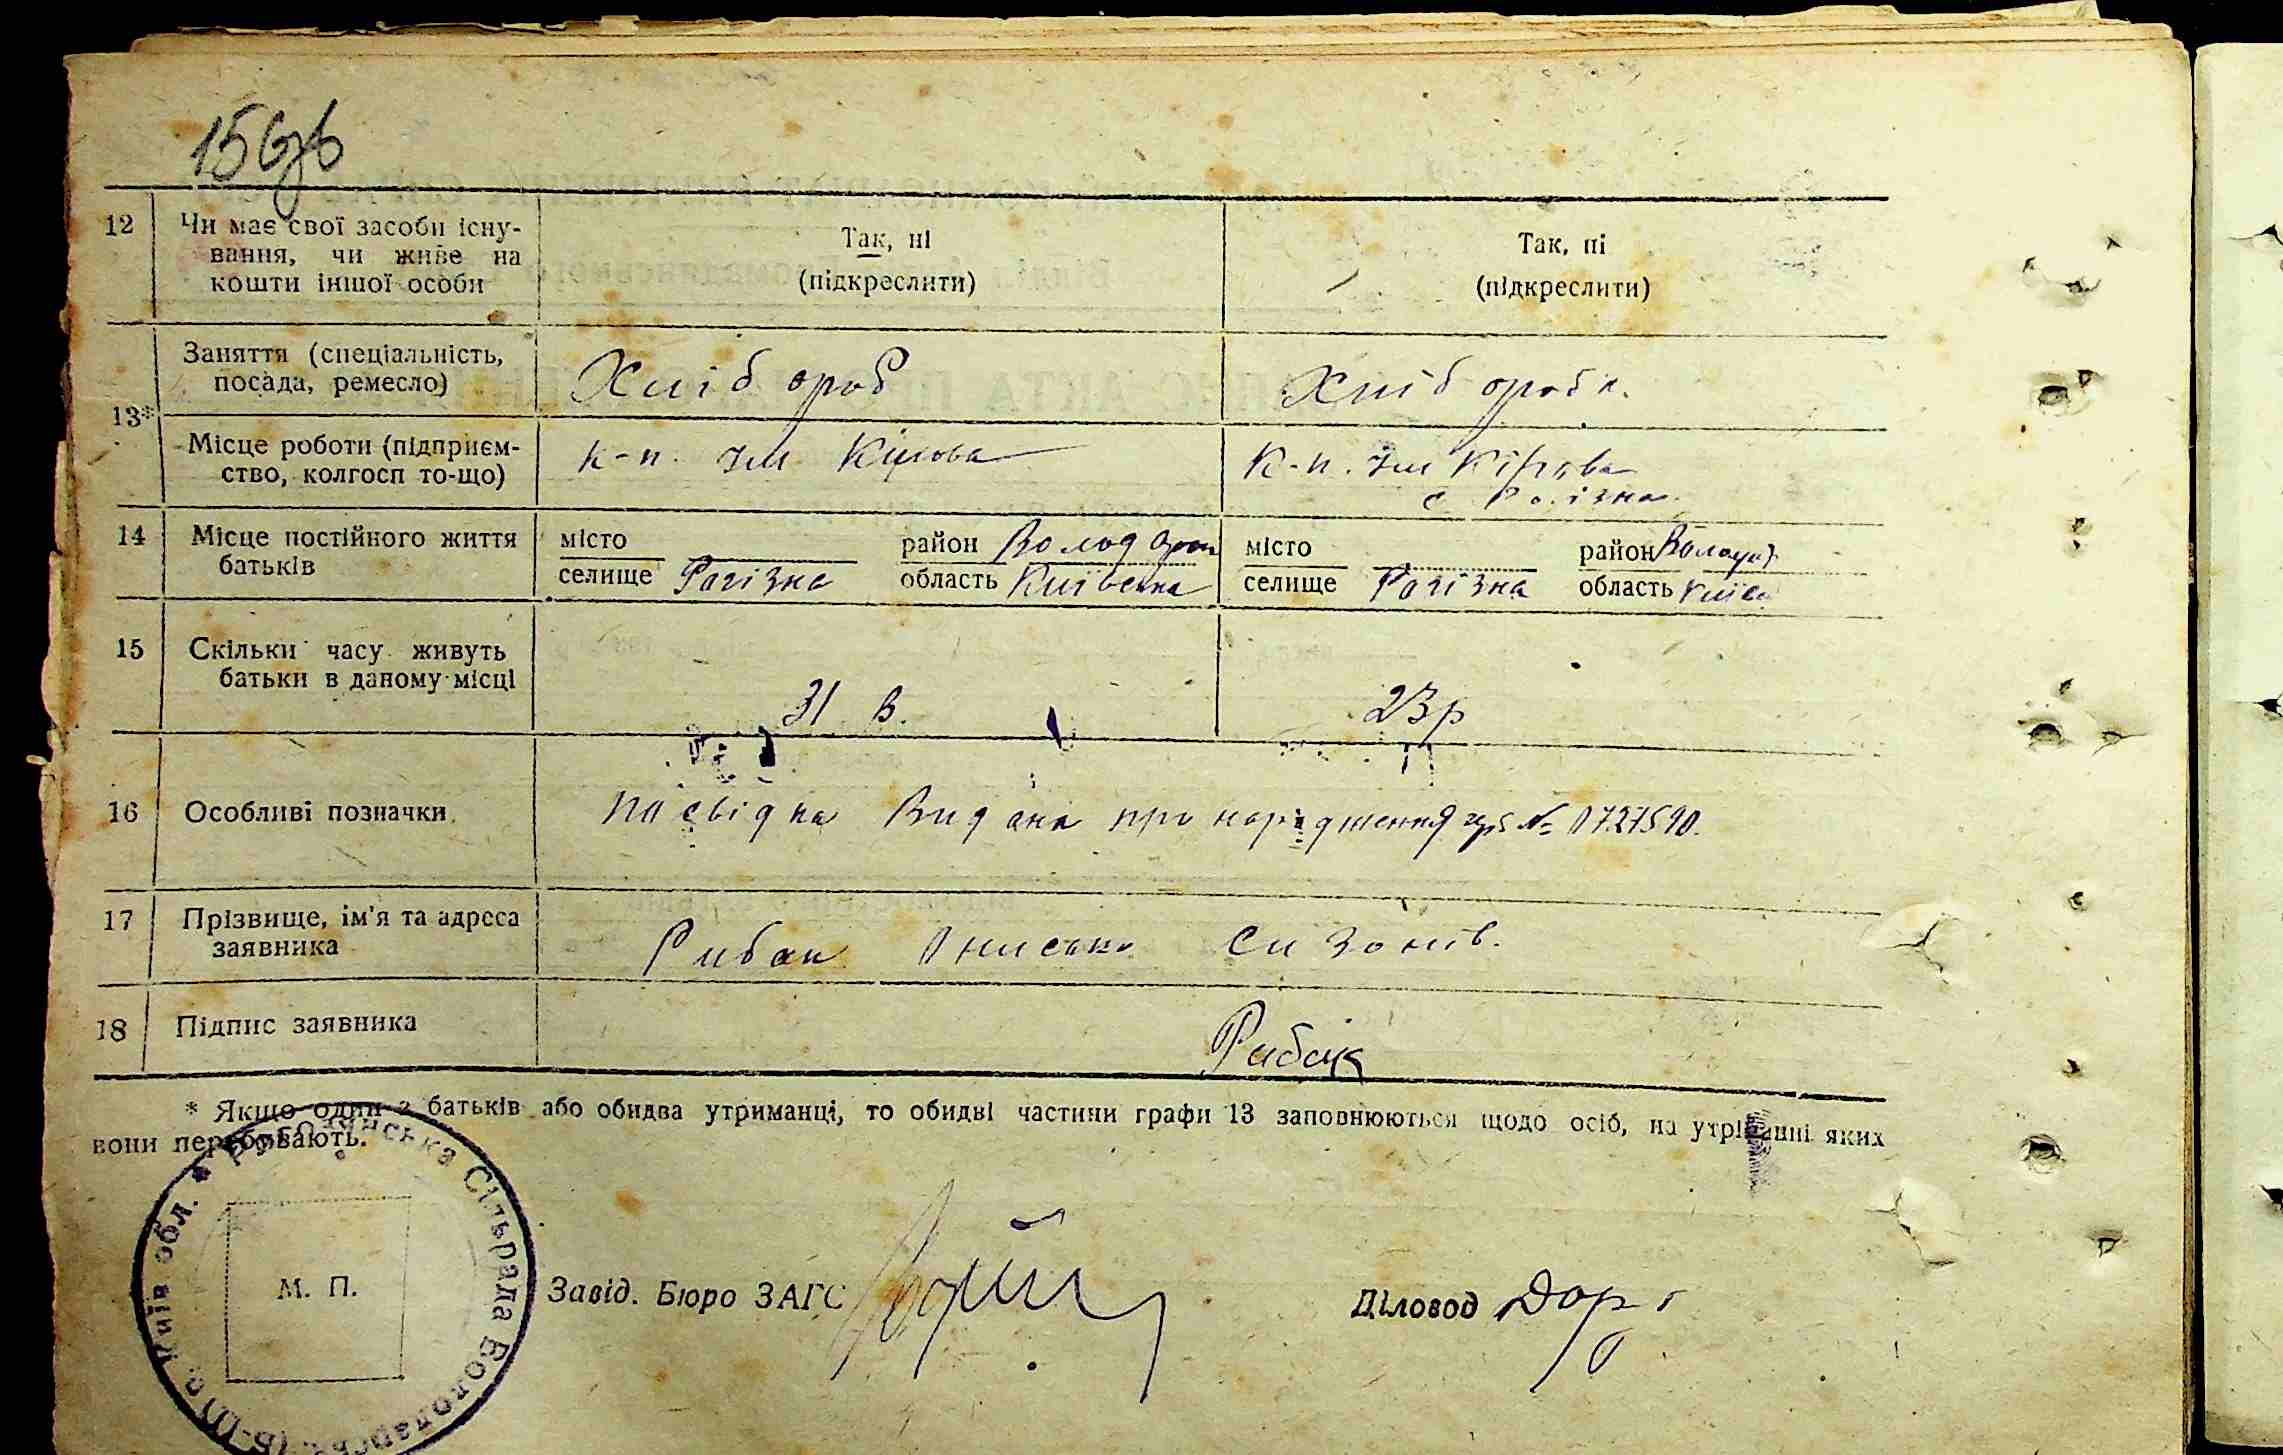 156
12 Чи має свої засоби існу-
вання, чи живе на
кошти іншої особи
Так, ні
(підкреслити)
Так, ні
(підкреслити)
13*
Заняття (спеціальність,
посада, ремесло)
Хліб ороб
Хліб ороб
Місце роботи (підприєм-
ство, колгосп то-що)
к-п. Ім Кірова
к-п. Ім Кірова
с
14 Місце постійного життя
батьків
місто
селище Рогізна
район Володар
область Київська
місто
селище Рогізна
район Володар
область Київ
15 Скільки часу живуть
батьки в даному місці
31 в.
23 р
16 Особливі позначки
Посвідка Видана про народження № 0727590.
17 Прізвище, ім'я та адреса
заявника
Рибак Онисько Сизонів.
18 Підпис заявника
Рибак
* Якщо один з батьків або обидва утриманці, то обидві частини графи 13 заповнюються щодо осіб, на утриманні яких
вони перебувають.
Сільрада Володарськ
Київ обл. *
М. П.
Завід. Бюро ЗАГС
Діловод